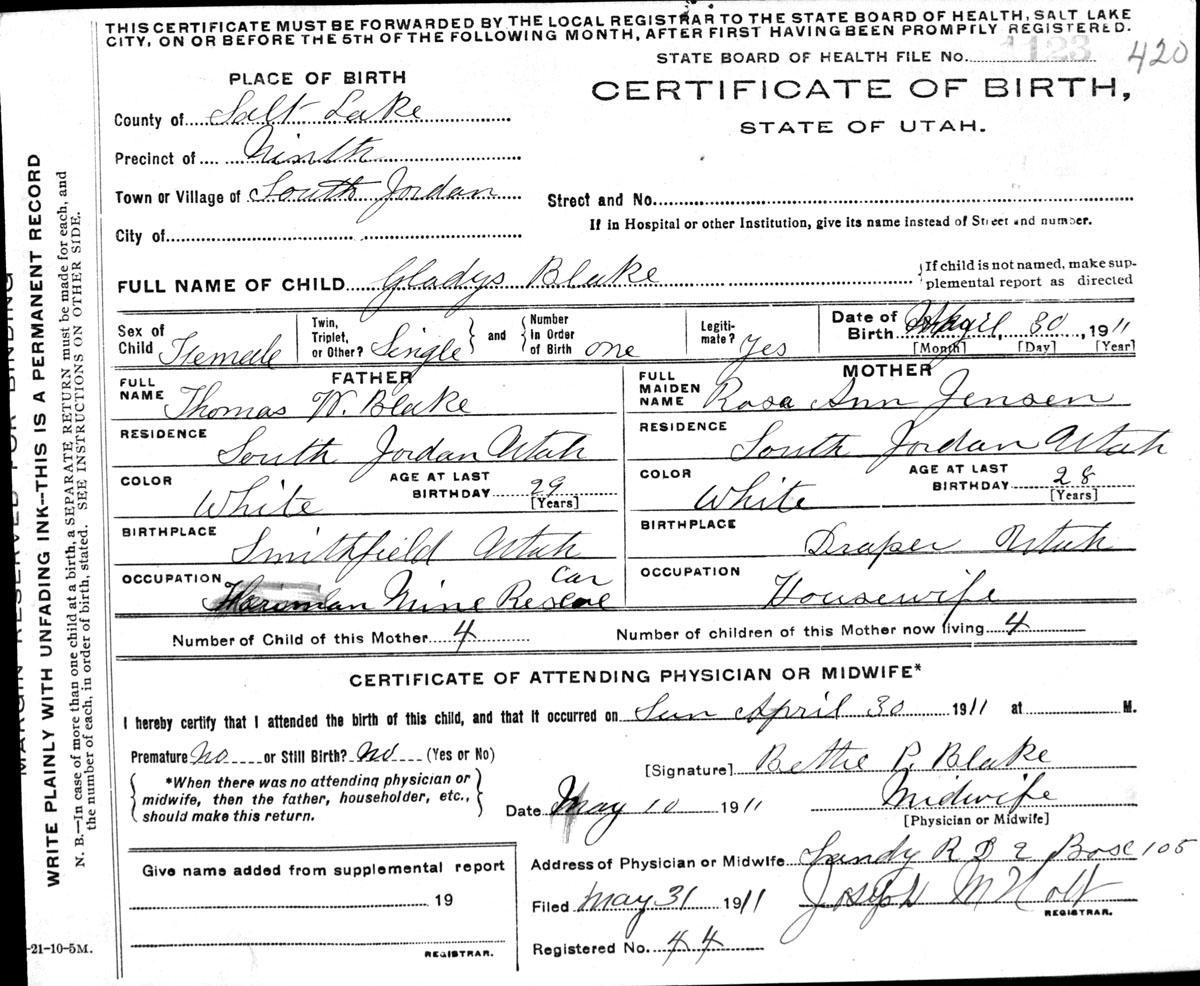 THIS CERTIFICATE MUST BE FORWARDED BY THE LOCAL REGISTRAR TO THE STATE BOARD OF HEALTH, SALT LAKE
CITY, ON OR BEFORE THE 5TH OF THE FOLLOWING MONTH, AFTER FIRST HAVING BEEN PROMPTLY REGISTERED.
STATE BOARD OF HEALTH FILE NO. 1123
420
PLACE OF BIRTH
CERTIFICATE OF BIRTH,
STATE OF UTAH.
County of Salt Lake
Precinct of Ninth
Town or Village of South Jordan
Street and No.
If in Hospital or other Institution, give its name instead of Street and number.
City of
FULL NAME OF CHILD Gladys Blake
If child is not named, make sup-
plemental report as directed
Sex of Child Female
Twin, Triplet, or Other? Single and Number In Order of Birth one
Legiti-mate? Yes
Date of Birth April, 30, 1911
[Month] [Day] [Year]
FATHER
FULL NAME Thomas W. Blake
RESIDENCE South Jordan Utah
COLOR White
AGE AT LAST BIRTHDAY 29 [Years]
BIRTHPLACE Smithfield Utah
OCCUPATION Mine Rescue Car
MOTHER
FULL MAIDEN NAME Rosa Ann Jensen
RESIDENCE South Jordan Utah
COLOR White
AGE AT LAST BIRTHDAY 28 [Years]
BIRTHPLACE Draper Utah
OCCUPATION Housewife
Number of Child of this Mother 4
Number of children of this Mother now living 4
CERTIFICATE OF ATTENDING PHYSICIAN OR MIDWIFE*
I hereby certify that I attended the birth of this child, and that it occurred on Sun April 30 1911 at M.
Premature No or Still Birth? No (Yes or No)
*When there was no attending physician or
midwife, then the father, householder, etc.,
should make this return.
[Signature] Bettie P. Blake
Date May 10 1911
Midwife
[Physician or Midwife]
Address of Physician or Midwife Sandy R D 2 Box 105
Filed May 31 1911
Joseph M Holt
REGISTRAR.
Registered No. 44
Give name added from supplemental report
19
REGISTRAR.
-21-10-5M.
MARGIN RESERVED FOR BINDING
WRITE PLAINLY WITH UNFADING INK--THIS IS A PERMANENT RECORD
N. B.—In case of more than one child at a birth, a SEPARATE RETURN must be made for each, and
the number of each, in order of birth, stated. SEE INSTRUCTIONS ON OTHER SIDE.